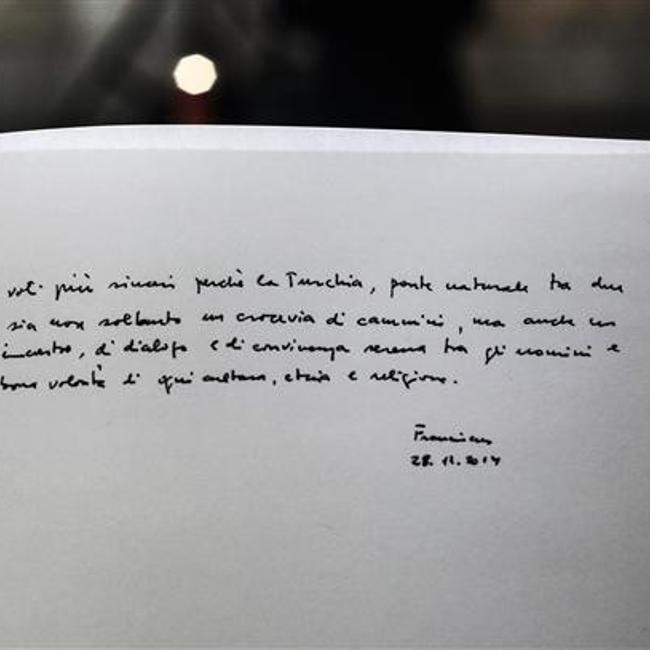 voti più sinceri perchè la Turchia, ponte naturale tra due
sia non soltanto un crocevia di cammini, ma anche un
incontro, di dialogo e di convivenza serena tra gli uomini e
buona volontà di ogni cultura, etnia e religione.
Franciscus
28.11.2014